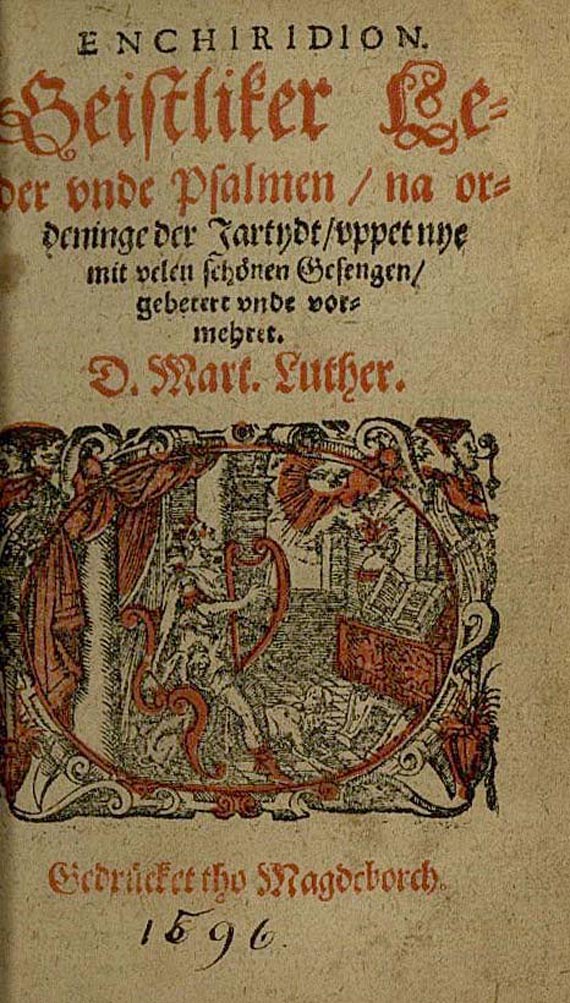 ENCHIRIDION.
Geiſtliker Le⸗
der vnde Pſalmen / na or⸗
deninge der Jartydt / vppet nye
mit velen ſchönen Geſengen /
gebetert vnde vor⸗
mehret.
D. Mart. Luther.
Gedrücket tho Magdeborch.
1596.